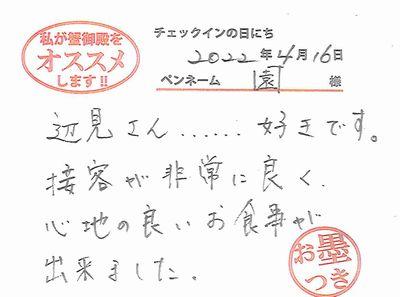 私が蟹御殿を
オススメ
します!!
チェックインの日にち
2022年4月16日
ペンネーム 園 様
辺見さん......好きです。
接客が非常に良く、
心地の良いお食事が
出来ました。
お墨
つき